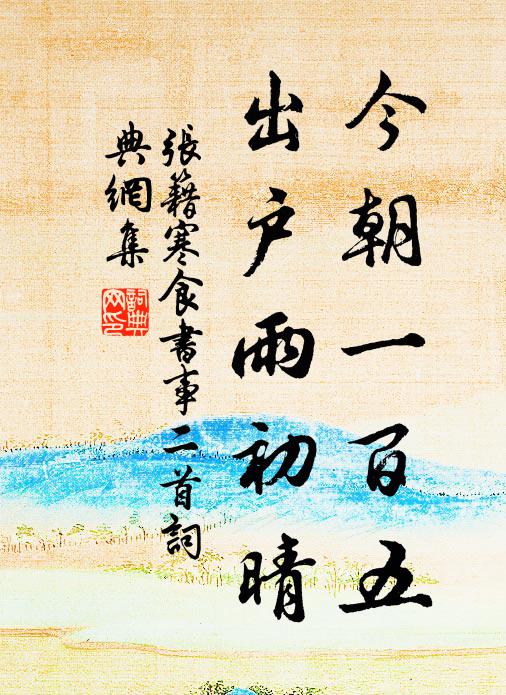 今朝一百五
出户雨初晴
張籍寒食書事二首詞
典網集
詞典
网印